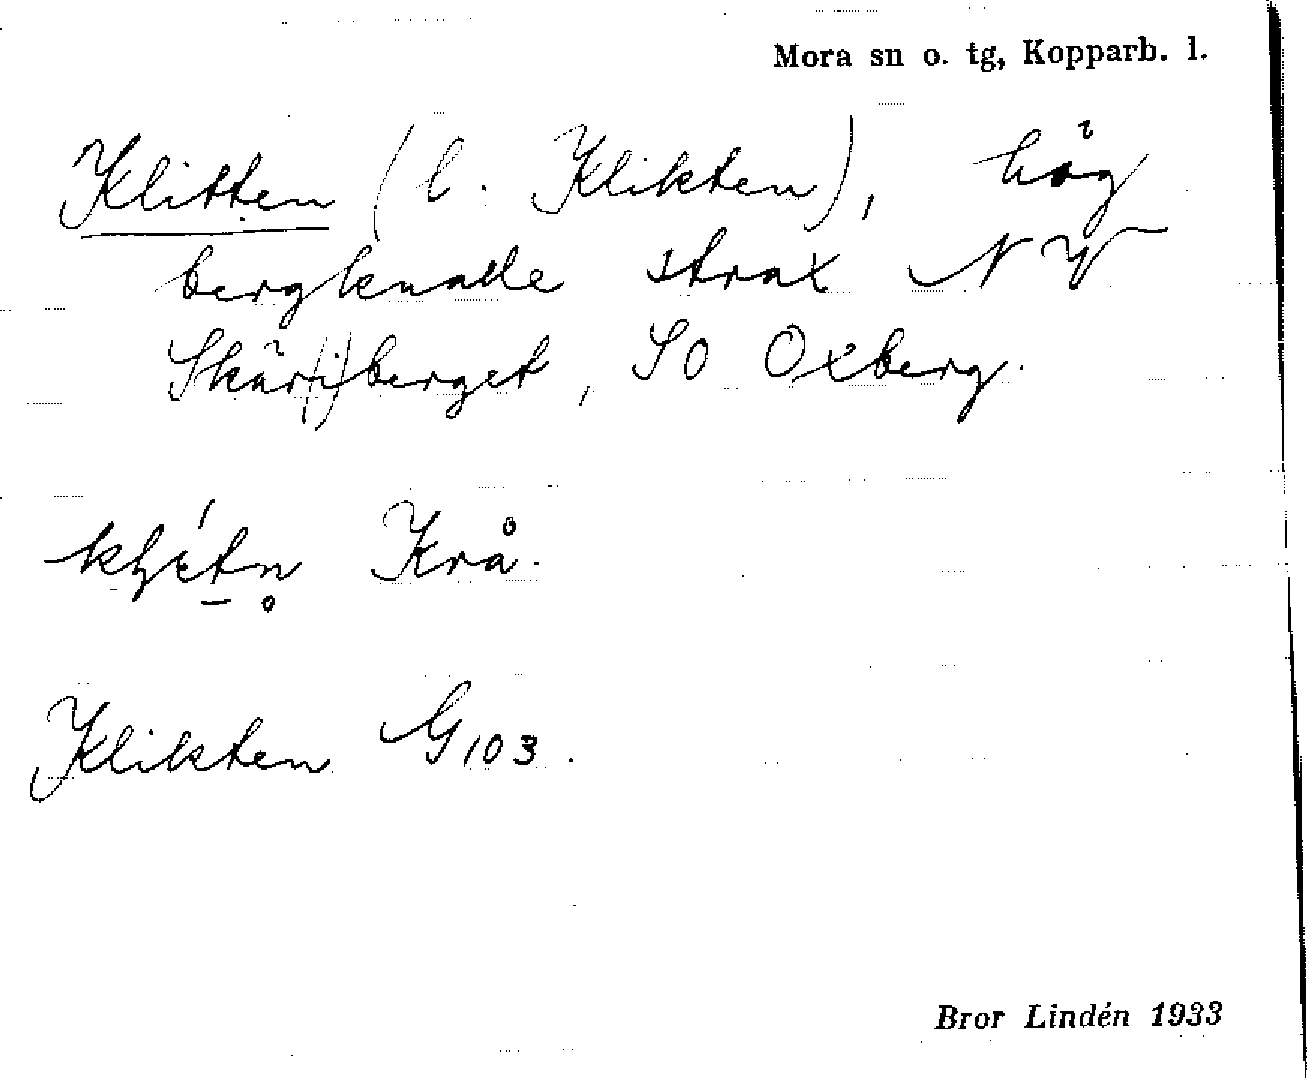 Mora sn o. tg, Kopparb. l.
Klitten (l. Klikten), hög
bergknalle strax NV
Skär(i)berget, SO Oxberg.
Krå.
Klikten G 103.
Bror Lindén 1933